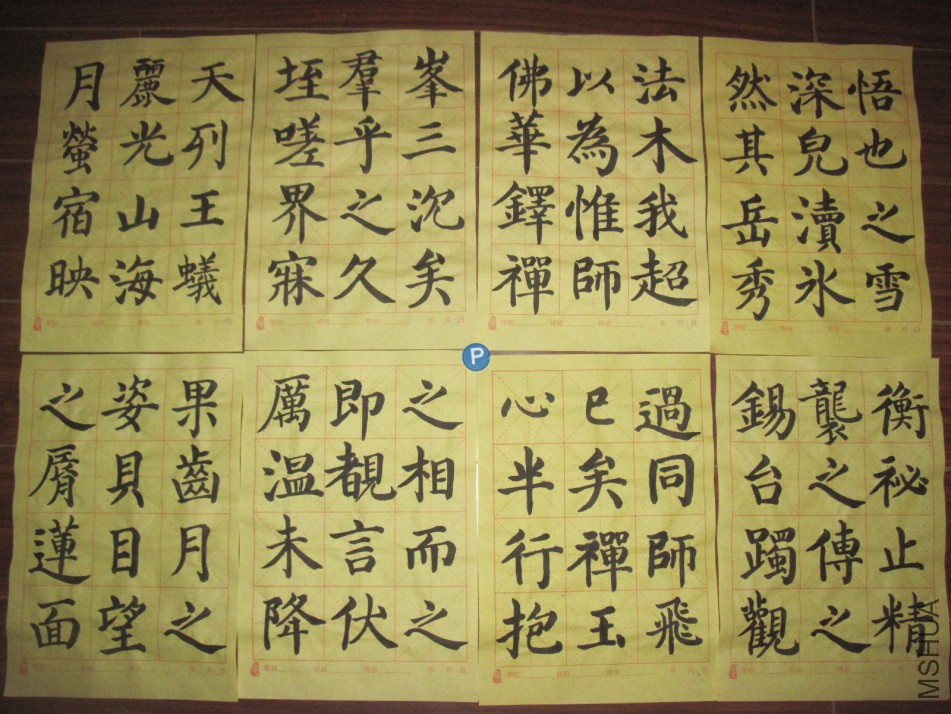 悟也之雪
深兒瀆氷
然其岳秀
法木我超
以為惟師
佛華鐸禪
峯三沉矣
羣乎之久
垤嗟界寐
天列王蟻
麗光山海
月螢宿映
衡祕止精
襲之傳之
錫台躅觀
過同師飛
已矣禪玉
心半行抱
之相而之
即覩言伏
厲温未降
果齒月之
姿貝目望
之脣蓮面
P
MSHUA